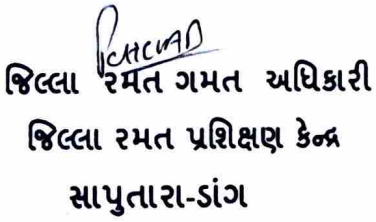 જિલ્લા રમત ગમત અધિકારી
જિલ્લા રમત પ્રશિક્ષણ કેન્દ્ર
સાપુતારા-ડાંગ